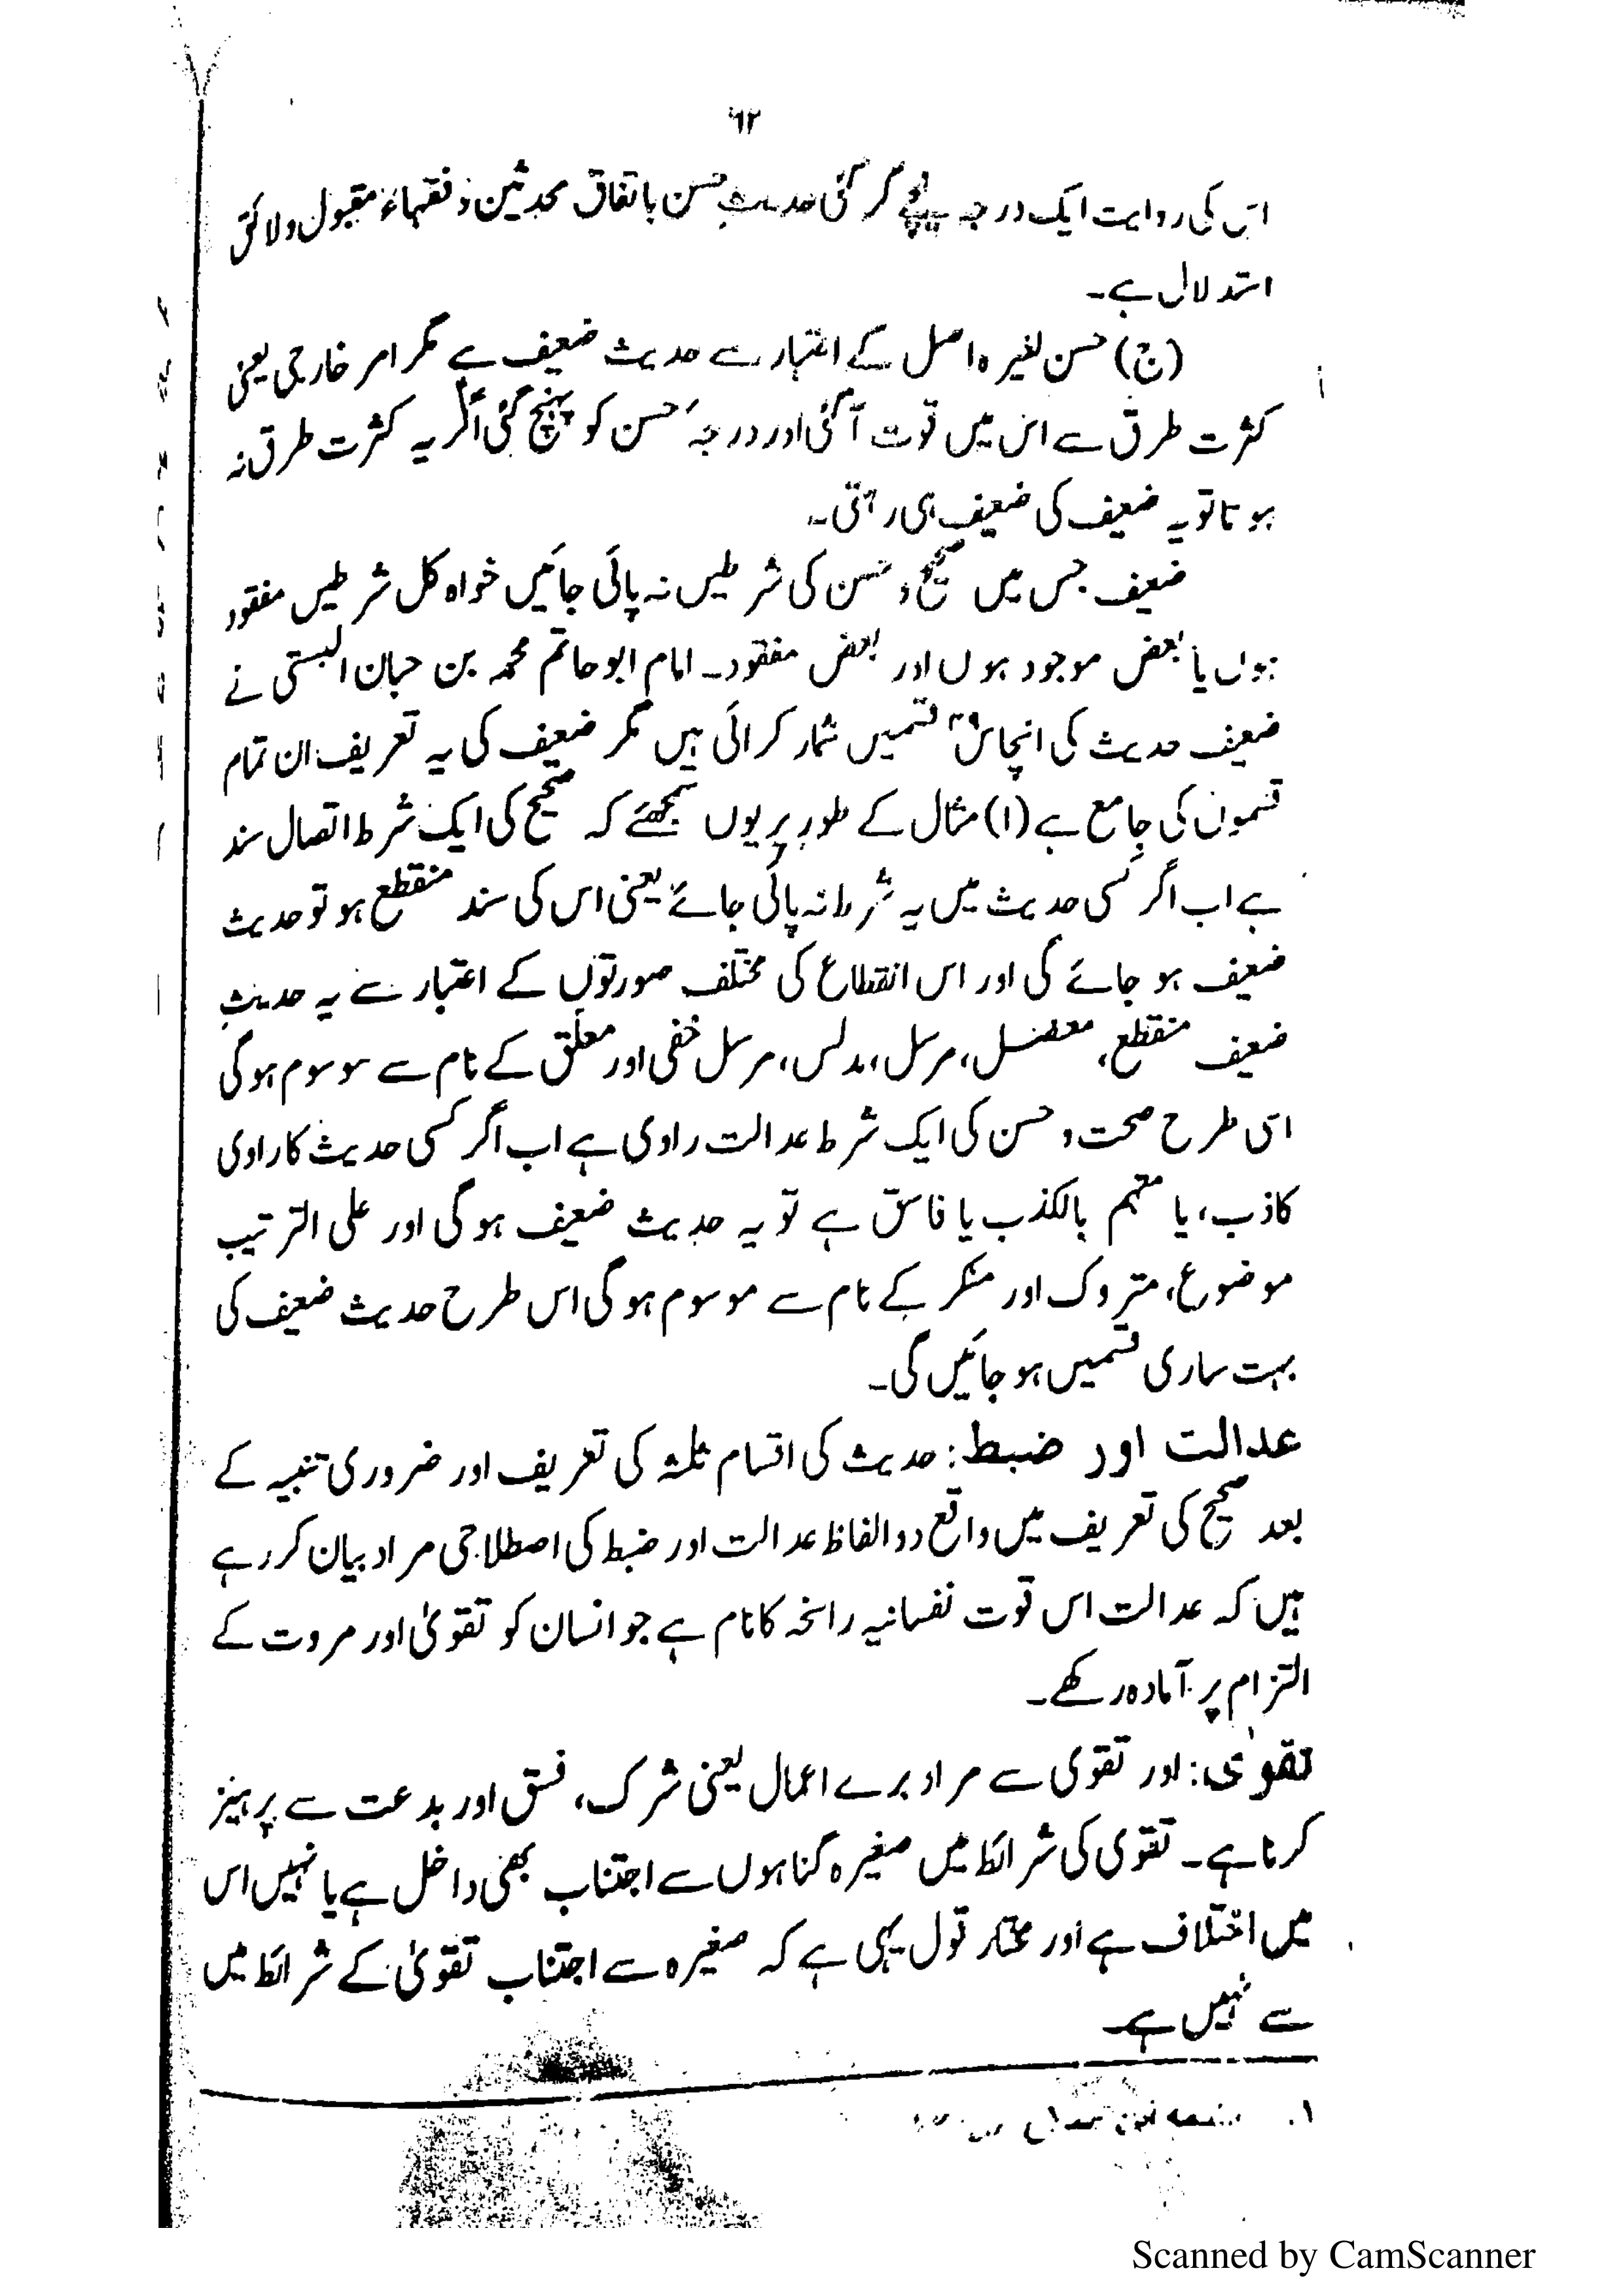 ۶۲
اس کی روایت ایک درجہ نیچے گر گئی حدیث حسن باتفاق محدثین و فقہاء مقبول و لائق
استدلال ہے۔
(ج) حسن لغیرہ اصل کے اعتبار سے حدیث ضعیف ہے مگر امر خارجی یعنی
کثرت طرق سے اس میں قوت آگئی اور درجۂ حسن کو پہنچ گئی اگر یہ کثرت طرق نہ
ہوتا تو یہ ضعیف کی ضعیف ہی رہتی۔
ضعیف جس میں صحیح و حسن کی شرطیں نہ پائی جائیں خواہ کل شرطیں مفقود
ہوں یا بعض موجود ہوں اور بعض مفقود۔ امام ابو حاتم محمد بن حبان البستی نے
ضعیف حدیث کی انچاس۴۹ قسمیں شمار کرائی ہیں مگر ضعیف کی یہ تعریف ان تمام
قسموں کی جامع ہے (۱) مثال کے طور پر یوں سمجھئے کہ صحیح کی ایک شرط اتصال سند
ہے اب اگر کسی حدیث میں یہ شرط نہ پائی جائے یعنی اس کی سند منقطع ہو تو حدیث
ضعیف ہو جائے گی اور اس انقطاع کی مختلف صورتوں کے اعتبار سے یہ حدیث
ضعیف منقطع، معضل، مرسل، مدلس، مرسل خفی اور معلق کے نام سے موسوم ہوگی
اسی طرح صحت و حسن کی ایک شرط عدالت راوی ہے اب اگر کسی حدیث کا راوی
کاذب، یا متہم بالکذب یا فاسق ہے تو یہ حدیث ضعیف ہوگی اور علی الترتیب
موضوع، متروک اور منکر کے نام سے موسوم ہوگی اس طرح حدیث ضعیف کی
بہت ساری قسمیں ہو جائیں گی۔
عدالت اور ضبط: حدیث کی اقسام ثلثہ کی تعریف اور ضروری تنبیہ کے
بعد صحیح کی تعریف میں واقع دو الفاظ عدالت اور ضبط کی اصطلاحی مراد بیان کر رہے
ہیں کہ عدالت اس قوت نفسانیہ راسخہ کا نام ہے جو انسان کو تقویٰ اور مروت کے
التزام پر آمادہ رکھے۔
تقوٰی: اور تقوی سے مراد برے اعمال یعنی شرک، فسق اور بدعت سے پرہیز
کرنا ہے۔ تقوی کی شرائط میں صغیرہ گناہوں سے اجتناب بھی داخل ہے یا نہیں اس
میں اختلاف ہے اور مختار قول یہی ہے کہ صغیرہ سے اجتناب تقویٰ کے شرائط میں
سے نہیں ہے۔
۱.
Scanned by CamScanner